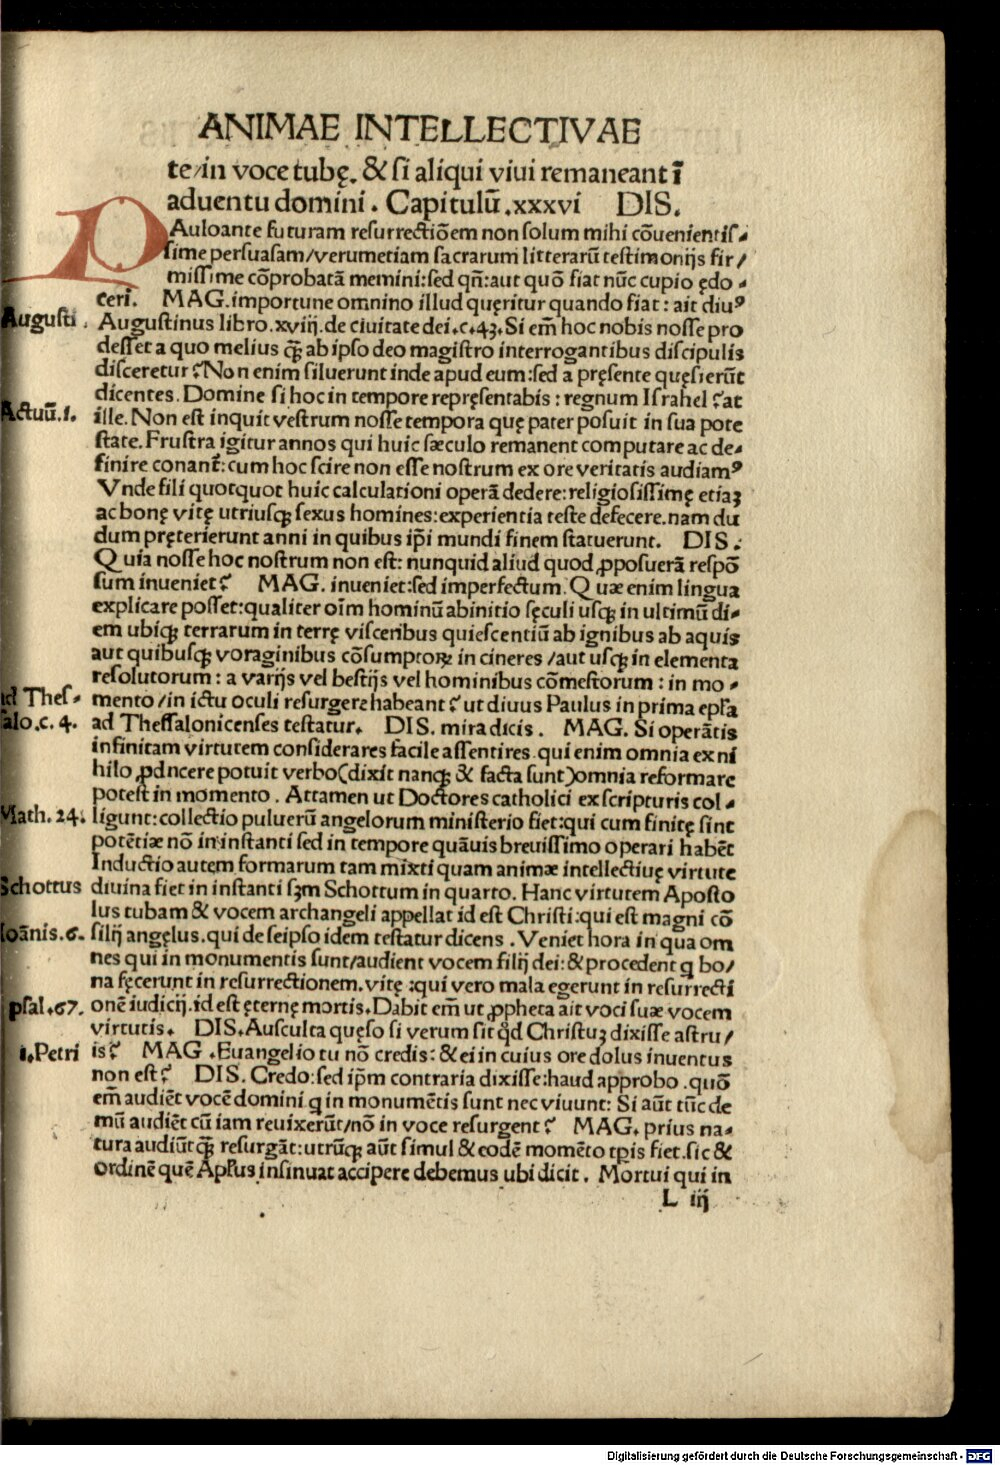 ANIMAE INTELLECTIVAE
te/in voce tubę. & si aliqui viui remaneant ī
aduentu domini. Capitulū.xxxvi DIS.
PAuloante futuram resurrectiōem non solum mihi cōuenientis⸗
sime persuasam/verumetiam sacrarum litterarū testimonijs fir/
missime cōprobatā memini:sed qñ:aut quō fiat nūc cupio ędo⸗
ceri. MAG.importune omnino illud quęritur quando fiat: ait diuꝰ
Augusti. Augustinus libro.xviij.de ciuitate dei.c.43.Si em̄ hoc nobis nosse pro
desset a quo melius q̄ꝫ ab ipso deo magistro interrogantibus discipulis
disceretur?Non enim siluerunt inde apud eum:sed a pręsente quęsierūt
dicentes. Domine si hoc in tempore repręsentabis: regnum Israhel?at
Actuū.1. ille. Non est inquit vestrum nosse tempora quę pater posuit in sua pote
state. Frustra igitur annos qui huic sæculo remanent computare ac de⸗
finire conant̄:cum hoc scire non esse nostrum ex ore veritatis audiamꝰ
Vnde fili quotquot huic calculationi operā dedere:religiosissimę etiaꝫ
ac bonę vitę utriusqꝫ sexus homines:experientia teste defecere.nam du
dum pręterierunt anni in quibus ip̄i mundi finem statuerunt. DIS.
Quia nosse hoc nostrum non est: nunquid aliud quod ꝓposuerā respō
sum inueniet? MAG. inueniet:sed imperfectum. Quæ enim lingua
explicare posset:qualiter oīm hominū abinitio sęculi usqꝫ in ultimū di⸗
em ubiqꝫ terrarum in terrę visceribus quiescentiū ab ignibus ab aquis
aut quibusqꝫ voraginibus cōsumptoꝝ in cineres/aut usqꝫ in elementa
resolutorum: a varijs vel bestijs vel hominibus cōmestorum: in mo⸗
ad Thes⸗ mento/in ictu oculi resurgere habeant? ut diuus Paulus in prima ep̄ła
salo.c.4. ad Thessalonicenses testatur. DIS. mira dicis. MAG. Si operātis
infinitam virtutem considerares facile assentires.qui enim omnia ex ni
hilo ꝓdncere potuit verbo(dixit nanqꝫ & facta sunt)omnia reformare
potest in momento. Attamen ut Doctores catholici ex scripturis col⸗
Math.24. ligunt:collectio puluerū angelorum ministerio fiet:qui cum finitę sint
potētiæ nō in instanti sed in tempore quāuis breuissimo operari habēt
Inductio autem formarum tam mixti quam animæ intellectiuę virtute
Schottus diuina fiet in instanti sꝫm Schottum in quarto. Hanc virtutem Aposto
lus tubam & vocem archangeli appellat id est Christi:qui est magni cō
Ioānis.6. silij angęlus.qui de seipso idem testatur dicens. Veniet hora in qua om
nes qui in monumentis sunt/audient vocem filij dei:& procedent q bo/
na fęcerunt in resurrectionem.vitę:qui vero mala egerunt in resurrecti
psal.67. onē iudicij.id est ęternę mortis.Dabit em̄ ut ꝓpheta ait voci suæ vocem
virtutis. DIS.Ausculta quęso si verum sit qd̄ Christuꝫ dixisse astru/
1.Petri is? MAG.Euangelio tu nō credis:& ei in cuius ore dolus inuentus
non est? DIS. Credo:sed ip̄m contraria dixisse:haud approbo.quō
em̄ audiēt vocē domini q in monumētis sunt nec viuunt: Si aūt tūc de
mū audiēt cū iam reuixerūt/nō in voce resurgent? MAG. prius na⸗
tura audiūt q̄ꝫ resurgāt:utrūqꝫ aūt simul & eodē momēto tp̄is fiet.sic &
ordinē quē Ap̄łus insinuat accipere debemus ubi dicit. Mortui qui in
L iij
Digitalisierung gefördert durch die Deutsche Forschungsgemeinschaft - DFG